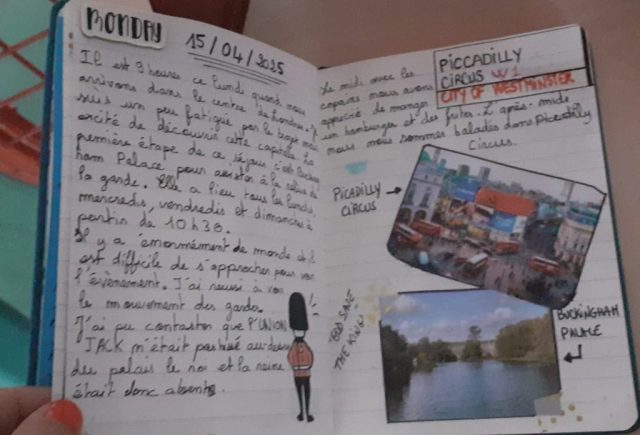 MONDAY
15/04/2025
Il est 9 heures ce lundi quand nous
arrivons dans le centre de Londres. Je
suis un peu fatigué par le trajet mais
excité de découvrir cette capitale. La
première étape de ce séjour c'est Buckin
ham Palace pour assister à la relève de
la garde. Elle a lieu tous les lundis,
mercredis, vendredis et dimanches à
partir de 10h30.
Il y a énormément de monde et il
est difficile de s'approcher pour voir
l'évènement. J'ai réussi à voir
le mouvement des gardes.
J'ai pu constater que l'UNION
JACK n'était pas hissé au-dessus
du palais le roi et la reine
était donc absents.
Le midi avec les
copains nous avons
apprécié de manger
un hamburger et des frites. L'après-midi
nous nous sommes baladés dans Piccadilly
Circus.
PICCADILLY
CIRCUS W1
CITY OF WESTMINSTER
PICADILLY
CIRCUS
GOD SAVE
THE KING
!
BUCKINGHAM
PALACE